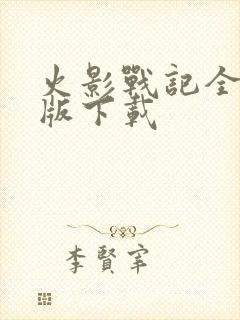 火影戰記全
版下載
李賢宰